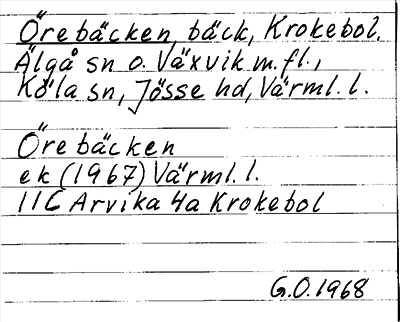 Örebäcken, bäck, Krokebol,
Älgå sn o. Växvik m. fl.,
Köla sn, Jösse hd, Värml. l.
Örebäcken
ek (1967) Värml. l.
11C Arvika 4a Krokebol
G.O. 1968